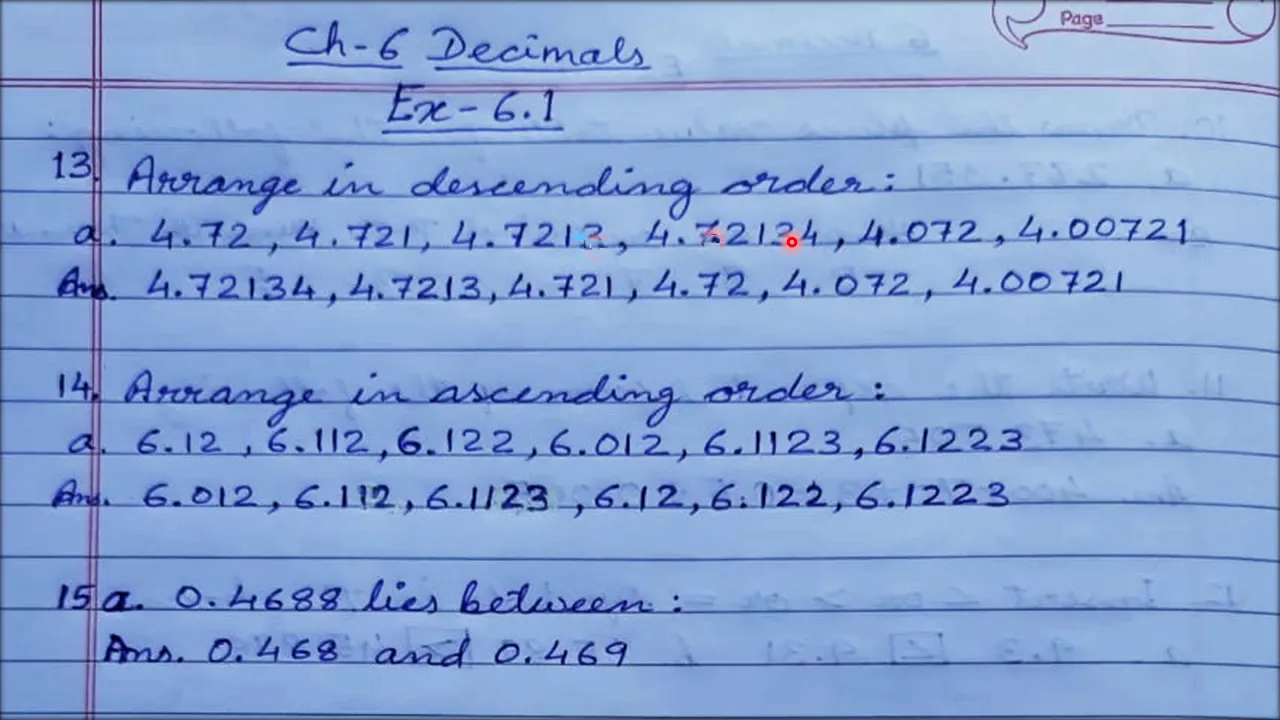 Page
Ch-6 Decimals
Ex-6.1
13. Arrange in descending order:
a. 4.72, 4.721, 4.7213, 4.72134, 4.072, 4.00721
Ans. 4.72134, 4.7213, 4.721, 4.72, 4.072, 4.00721
14. Arrange in ascending order:
a. 6.12, 6.112, 6.122, 6.012, 6.1123, 6.1223
Ans. 6.012, 6.112, 6.1123, 6.12, 6.122, 6.1223
15 a. 0.4688 lies between:
Ans. 0.468 and 0.469